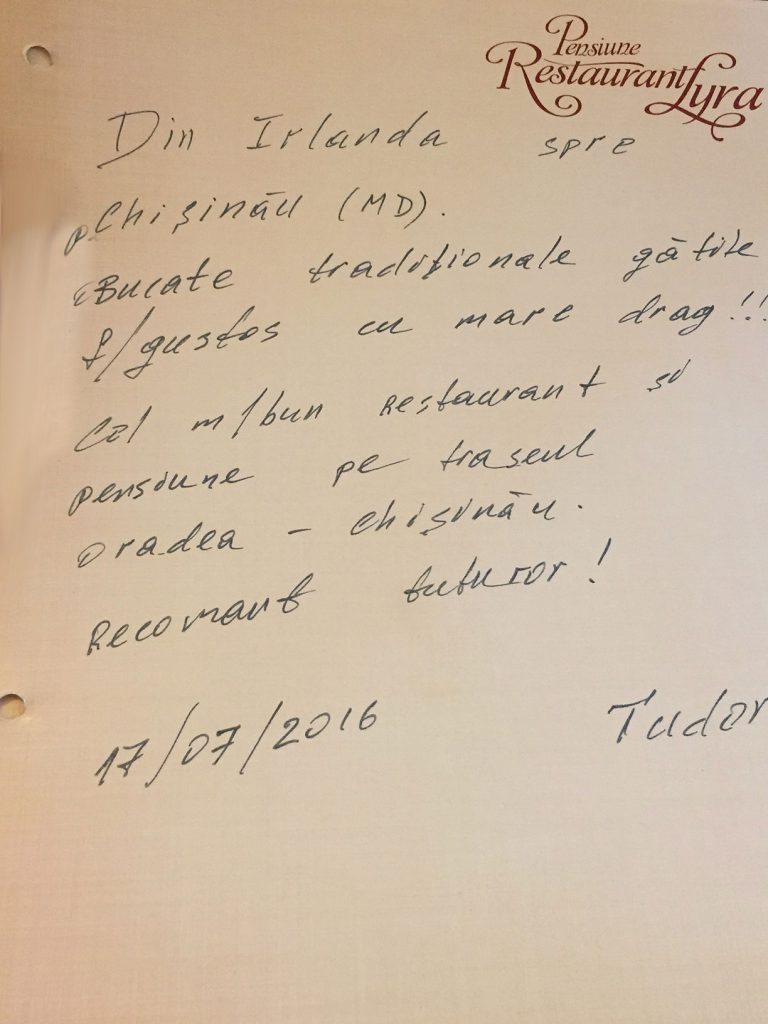 Pensiune
Restaurant Lyra
Din Irlanda spre
Chișinău (MD).
Bucate tradiționale gătite
f/gustos cu mare drag!!!
Cel m/bun restaurant și
pensiune pe traseul
Oradea - Chișinău.
Recomant tuturor!
17/07/2016 Tudor